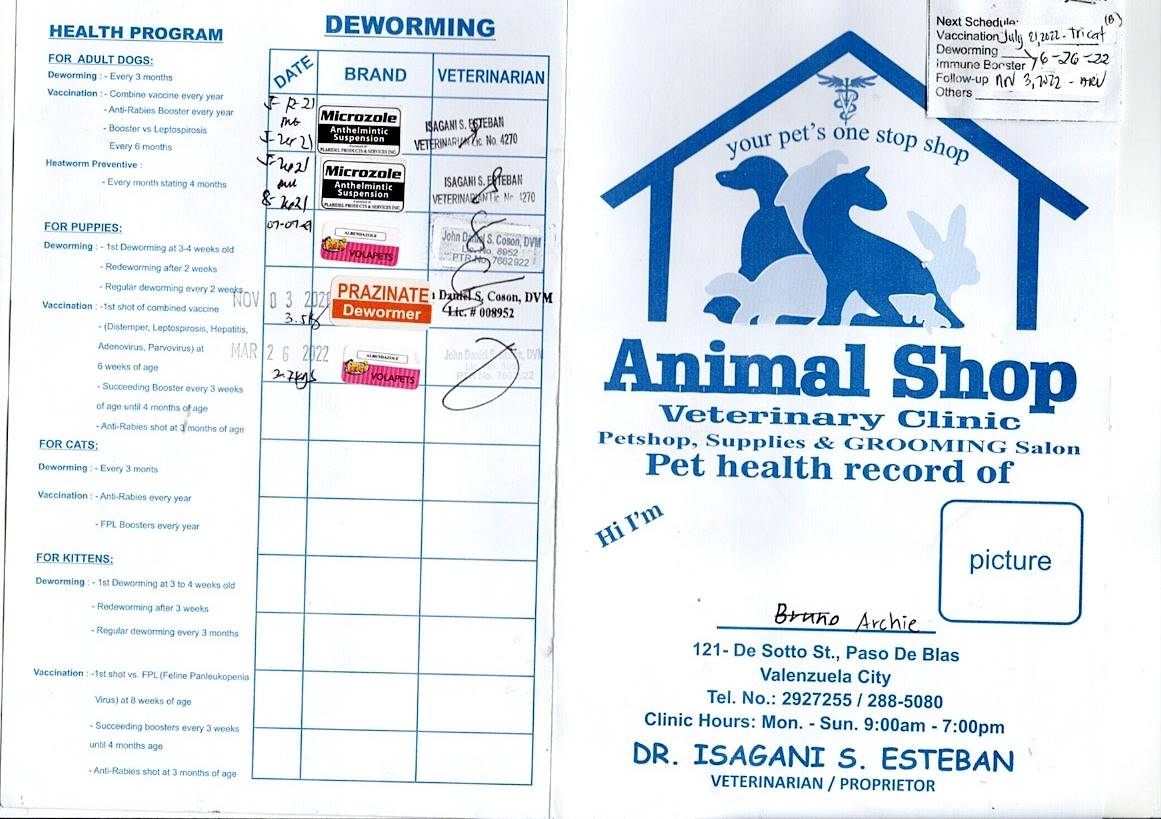 HEALTH PROGRAM
FOR ADULT DOGS:
Deworming : - Every 3 months
Vaccination : - Combine vaccine every year
- Anti-Rabies Booster every year
- Booster vs Leptospirosis
Every 6 months
Heatworm Preventive :
- Every month stating 4 months
FOR PUPPIES:
Deworming : - 1st Deworming at 3-4 weeks old
- Redeworming after 2 weeks
- Regular deworming every 2 weeks
Vaccination : -1st shot of combined vaccine
- (Distemper, Leptospirosis, Hepatitis,
Adenovirus, Parvovirus) at
6 weeks of age
- Succeeding Booster every 3 weeks
of age until 4 months of age
- Anti-Rabies shot at 3 months of age
FOR CATS:
Deworming : - Every 3 monts
Vaccination : - Anti-Rabies every year
- FPL Boosters every year
FOR KITTENS:
Deworming : - 1st Deworming at 3 to 4 weeks old
- Redeworming after 3 weeks
- Regular deworming every 3 months
Vaccination : -1st shot vs. FPL (Feline Panleukopenia
Virus) at 8 weeks of age
- Succeeding boosters every 3 weeks
until 4 months age
- Anti-Rabies shot at 3 months of age
DEWORMING
DATE BRAND VETERINARIAN
Microzole
Anthelmintic
Suspension
PLARIDEL PRODUCTS & SERVICES INC.
ISAGANI S. ESTEBAN
VETERINARIAN Lic. No. 4270
Microzole
Anthelmintic
Suspension
PLARIDEL PRODUCTS & SERVICES INC.
ISAGANI S. ESTEBAN
VETERINARIAN Lic. No. 4270
ALBENDAZOLE
VOLAPETS
John Daniel S. Coson, DVM
Lic. No. 8952
PTR No. 7662922
NOV 03 2021
PRAZINATE
Dewormer
Daniel S. Coson, DVM
Lic. # 008952
MAR 26 2022
2.7kgs
ALBENDAZOLE
VOLAPETS
Next Schedule:
(B)
Vaccination July 21,2022 - Tricat
Deworming
Immune Booster 6-26-22
Follow-up Nov 3, 2022 - ARV
Others
your pet's one stop shop
Animal Shop
Veterinary Clinic
Petshop, Supplies & GROOMING Salon
Pet health record of
Hi I'm
picture
Bruno Archie
121- De Sotto St., Paso De Blas
Valenzuela City
Tel. No.: 2927255 / 288-5080
Clinic Hours: Mon. - Sun. 9:00am - 7:00pm
DR. ISAGANI S. ESTEBAN
VETERINARIAN / PROPRIETOR